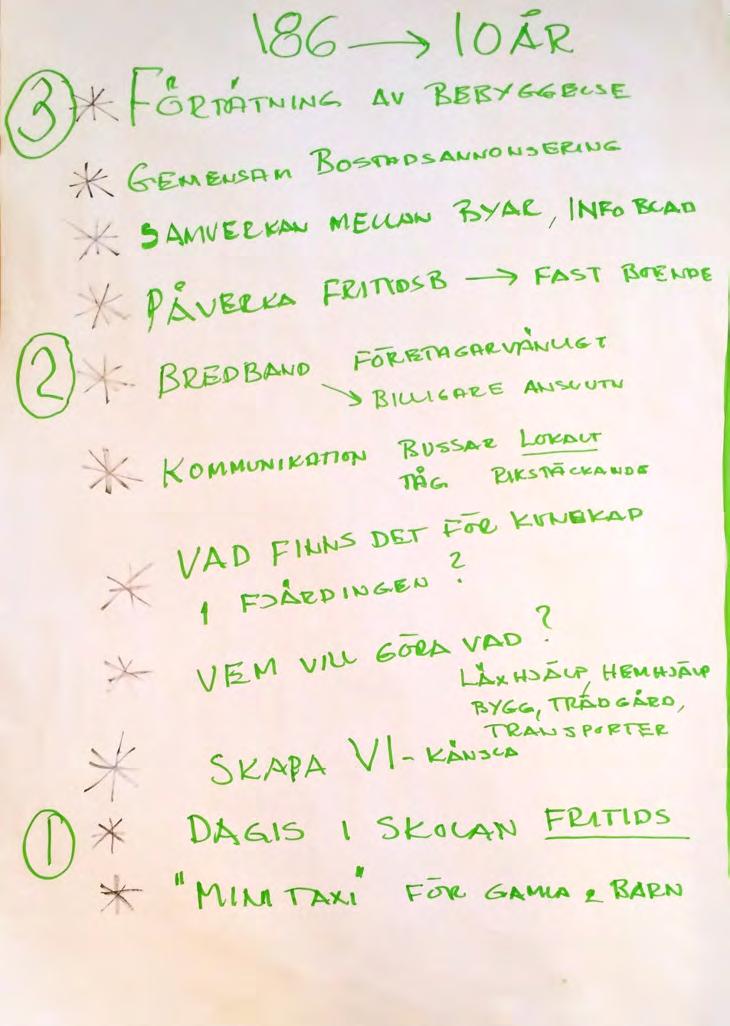 186 → 10 ÅR
③ * FÖRTÄTNING AV BEBYGGELSE
* GEMENSAM BOSTADSANNONSERING
* SAMVERKAN MELLAN BYAR, INFO BLAD
* PÅVERKA FRITIDSB → FAST BOENDE
② * BREDBAND FÖRETAGARVÄNLIGT
→ BILLIGARE ANSLUTN
* KOMMUNIKATION BUSSAR LOKALT
TÅG RIKSTÄCKANDE
* VAD FINNS DET FÖR KUNSKAP
I FJÄRDINGEN ?
* VEM VILL GÖRA VAD ?
LÄXHJÄLP, HEMHJÄLP
BYGG, TRÄDGÅRD,
TRANSPORTER
* SKAPA VI-KÄNSLA
① * DAGIS I SKOLAN FRITIDS
* "MINI TAXI" FÖR GAMLA & BARN